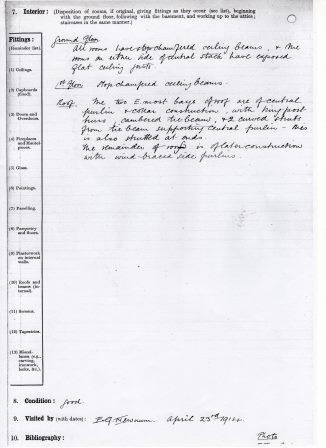 7. Interior: (Disposition of rooms, if original, giving fittings as they occur (see list), beginning
with the ground floor, following with the basement, and working up to the attics;
staircases in the same manner.)
Fittings:
(Reminder list).
(1) Ceilings.
(2) Cupboards
(fixed).
(3) Doors and
Doorways.
(4) Fireplaces
and Mantel-
pieces.
(5) Glass.
(6) Paintings.
(7) Panelling.
(8) Parquetry
and floors.
(9) Plasterwork
on internal
walls.
(10) Roofs and
beams (in-
ternal).
(11) Screens.
(12) Tapestries.
(13) Miscel-
lanea (e.g.,
carving,
ironwork,
locks, &c.).
Ground Floor
All rooms have stop chamfered ceiling beams, & the
rooms on either side of central stack have exposed
flat ceiling joists.
1st Floor Stop chamfered ceiling beams
Roof. The two E.most bays of roof are of central
purlin & collar construction, with king post
truss, cambered tie beam, & 2 curved struts
from tie beam supporting central purlin - this
is also strutted at ends.
The remainder of roof is of later construction
with wind braced side purlins.
8. Condition: good.
9. Visited by (with dates): April 23rd 1914.
10. Bibliography:
Photo